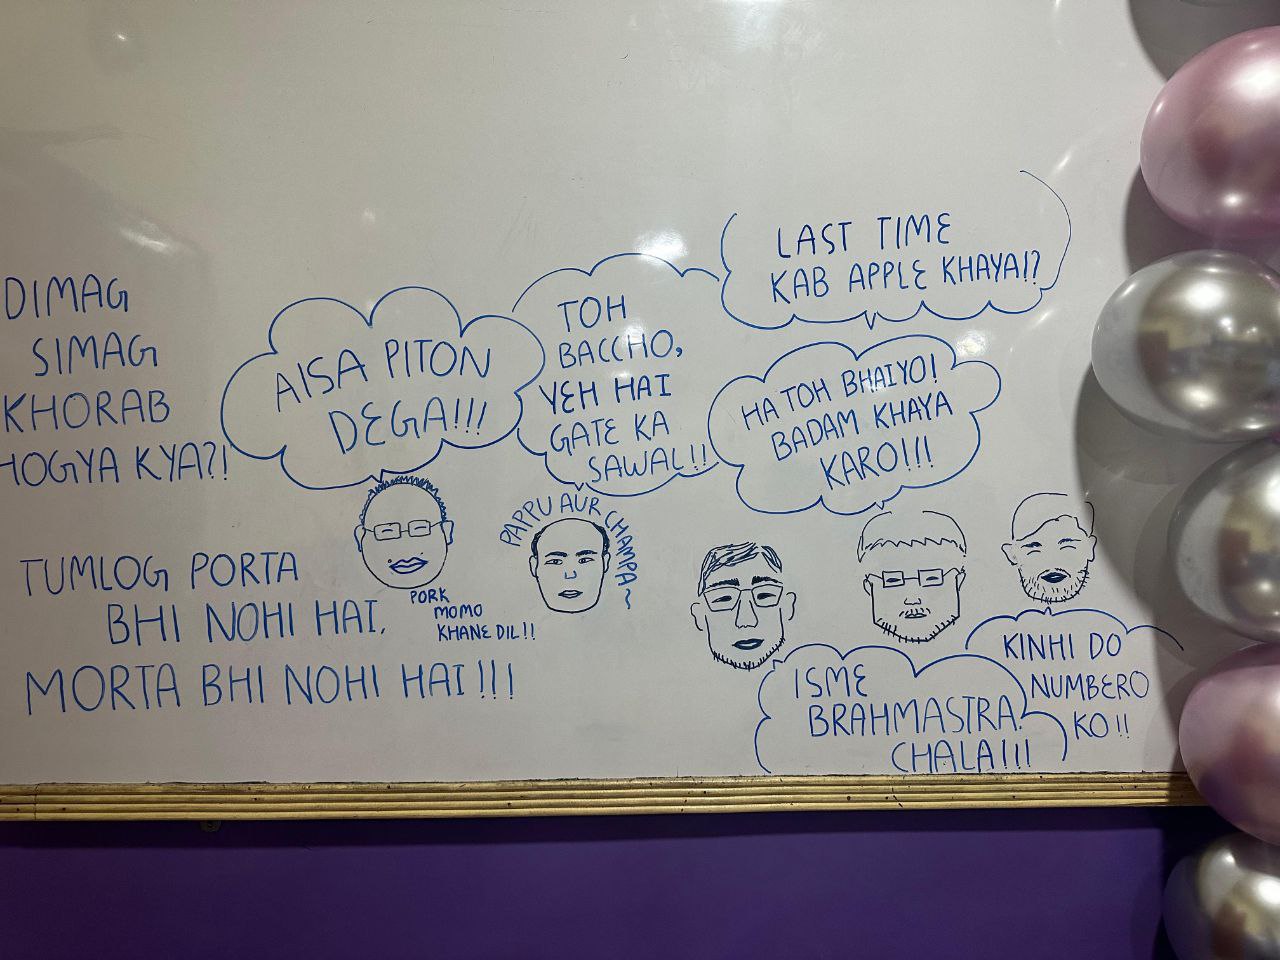 DIMAG
SIMAG
KHORAB
HOGYA KYA?!
TUMLOG PORTA
BHI NOHI HAI,
MORTA BHI NOHI HAI!!!
AISA PITON
DEGA!!!
PORK
MOMO
KHANE DIL!!
TOH
BACCHO,
YEH HAI
GATE KA
SAWAL!!
PAPPU AUR CHAMPA~
LAST TIME
KAB APPLE KHAYA!?
HA TOH BHAIYO!
BADAM KHAYA
KARO!!!
ISME
BRAHMASTRA
CHALA!!!
KINHI DO
NUMBERO
KO!!